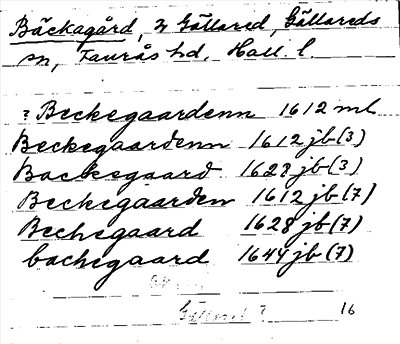 Bäckagård, i Gällared, Gällareds
sn, Faurås hd. Hall. l.
? Beckegaardenn 1612 ml
Beckegaardenn 1612 jb(3)
Backegaard 1628 jb(3)
Beckegaarden 1612 jb(7)
Beckegaard 1628 jb(7)
backegaard 1644 jb(7)
Gällared ? 16